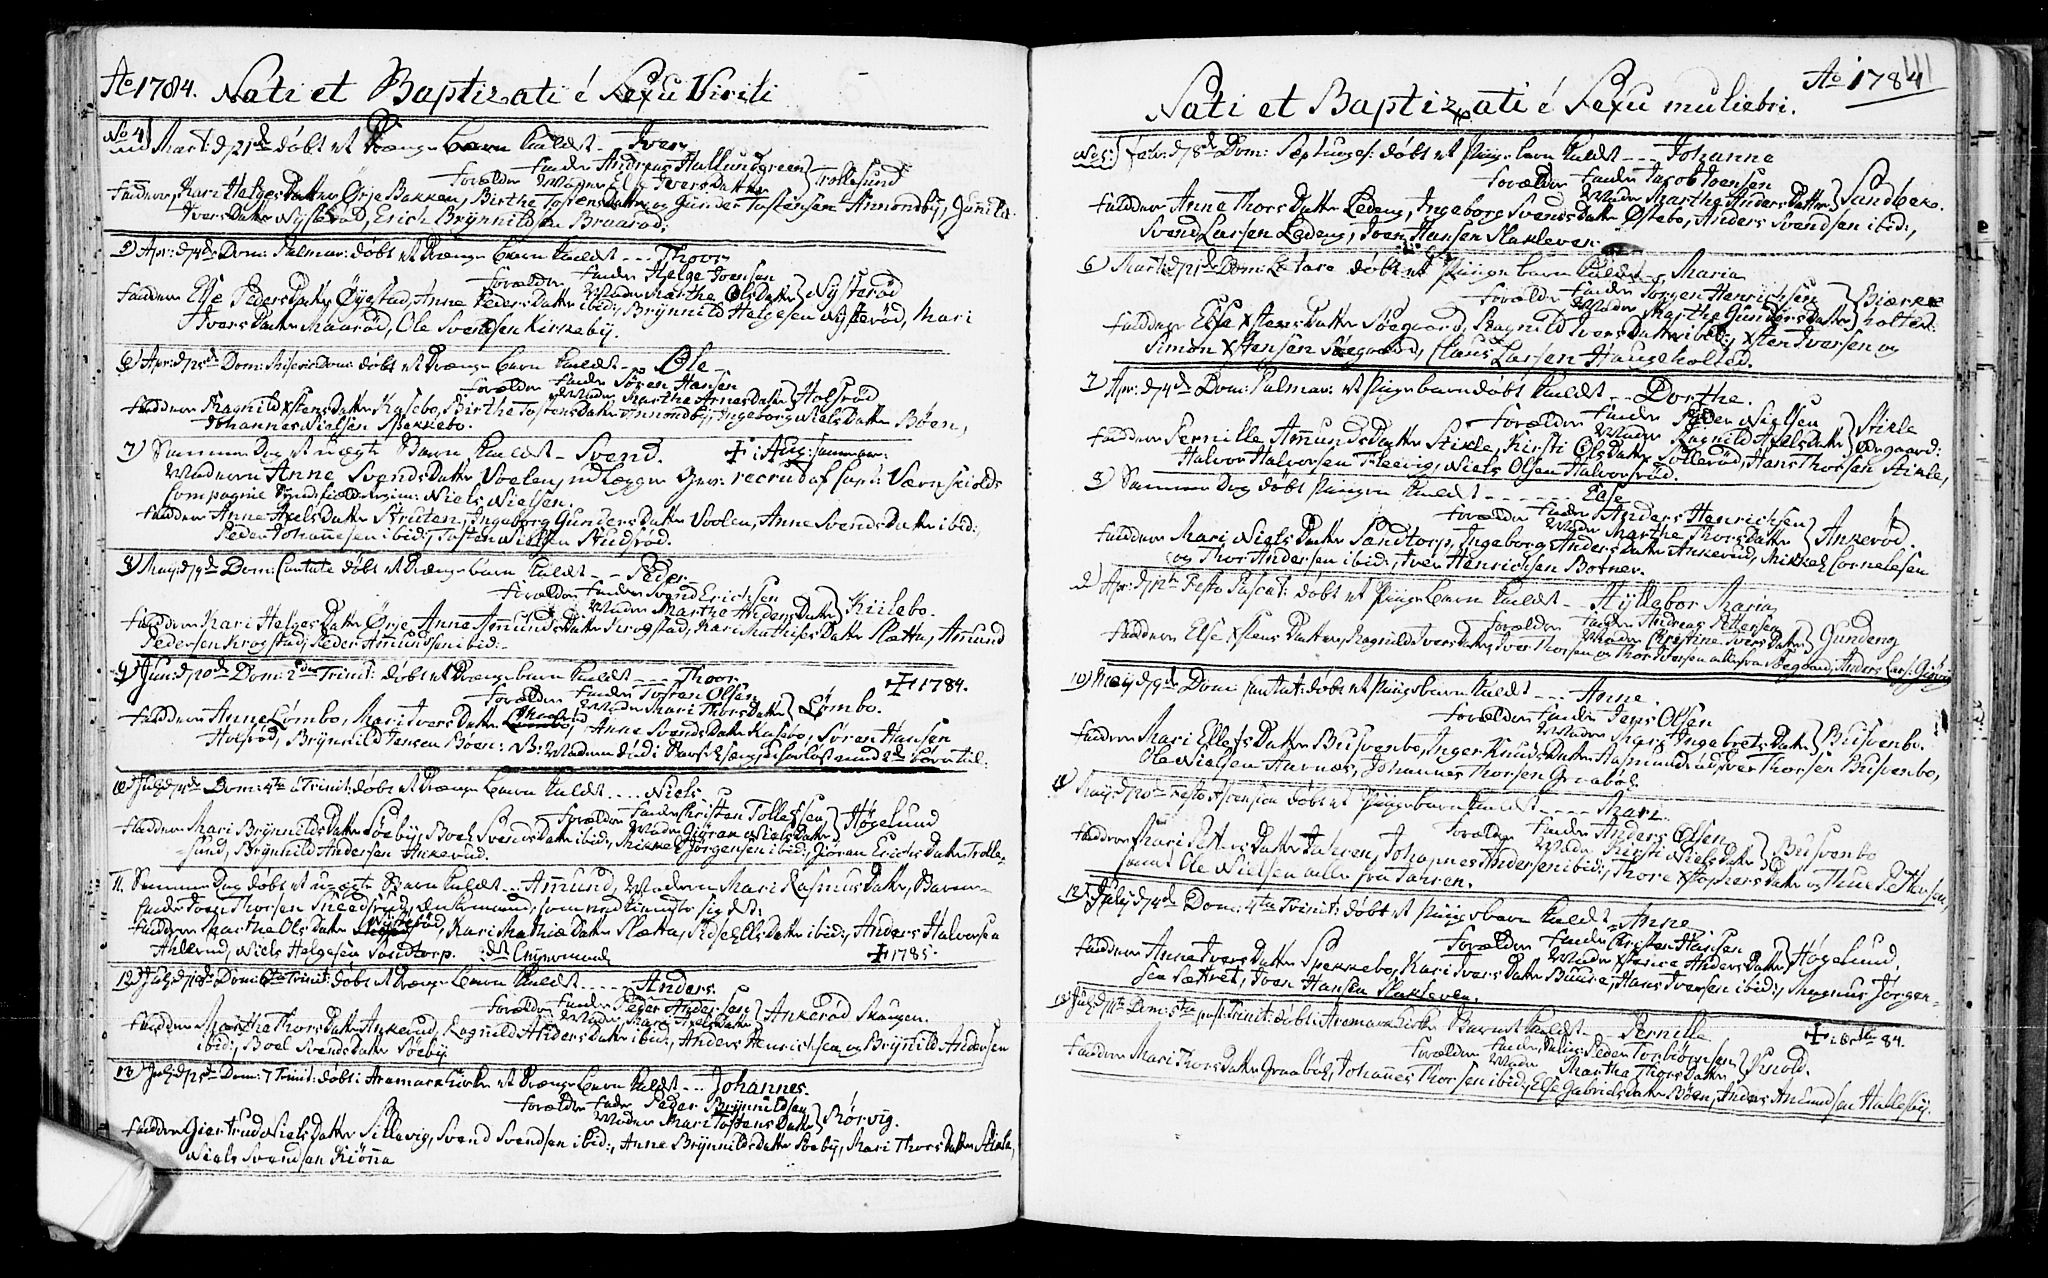 Ao 1784. Nati et Baptizati é Sexu Virili
No 4) Mart: d 21de døbt et Drænge barn kaldt - Iver
Forælder Fader Andreas Hallundgreen
Moder Else IversDatter } Trollesund
Faddere, Kari HelgesDatter Ørje Bakken, Birthe TostensDatter og Gunder Tostensen Ammondby, Gunila
IversDatter Nysterød, Erich Brynnildsen Braarød.
5) Apr: d 4de Dom: Palmar: døbt et Drænge barn kaldt --- Thor
Forælder Fader Helge Joensen
Moder Marthe OlsDatter } Nysterød
Faddere Else PedersDatter Øygstad, Anne PedersDatter ibid:, Brynnild Helgesen Nysterød, Mari
IversDatter Maarud, Ole Svendsen Kirkeby.
6) Apr: d 25de Dom: Miseric Dom: døbt et Drænge barn kaldt --- Ole
Forælder Fader Sören Hansen
Moder Marthe ArnesDatter } Holsrød
Faddere Ragnild XstensDatter Kasebo, Birthe TostensDatter Ammondby, Ingeborg NielsDatter Böen,
Johannes Nielsen Spekkebo.
7) Samme Dag et uægte Barn kaldt - Svend. † i Aug: samme aar:
Moderen Anne SvendsDatter Voelen, udlegger Gev: recrud af Capt: Værnskiolds
Compagnie Niels Nielsen.
Faddere Anne AxelsDatter Struten, Ingeborg GundersDatter Voolen, Anne SvendsDatter ibid:,
Peder Johannesen ibid:, Tosten Nielsen Skudsrød.
8) May: d 9de Dom: Cantate døbt et Drænge barn kaldt -- Peder
Forælder Fader Svend Erichsen
Moder Marthe AndersDatter } Kiilebo.
Faddere Kari HelgesDatter Ørje, Anne AmundsDatter Krogstad, Kari MathisesDatter Slætta, Amund
Pedersen Krogstad, Peder Amundsen ibid:
9) Jun: d 20de Dom: 2den Trinit: døbt et Drænge barn kaldt --- Thor. † 1784.
Forælder Fader Tosten Olsen
Moder Mari ThorsDatter } Lømbo.
Faddere Anne Lømbo, Mari IversDatter Maarud, Anne SvendsDatter Kasebo, Sören Hansen
Holsrød, Brynnild Jensen Böen: NB: Moderen död i Barselseng, uforløst med 2de børn til.
10) July: d 4de Dom: 4ta a Trinit: døbt et Drænge barn kaldt --- Niels.
Forælder Fader Christen Tollefsen
Moder Giöran NielsDatter } Høgelund
Faddere Mari BrynnildsDatter Søeby, Boel SvendsDatter ibid:, Mikkel Jörgensen ibid:, Giöran ErichsDatter Trolle-
sund, Brynnild Andersen Ankerud.
11. Samme Dag døbt et uægte Barn kaldt --- Amund, Moderen Mari RasmusDatter, Barne-
fader Joen Thorsen Sneedsrud, Enkemand, som vedkiendte sig det.
Faddere Marthe OlsDatter Nysterød, Kari MathiæDatter Slætta, Sidse ElsDatter ibid:, Anders Halvorsen
Ahlerud, Niels Helgesen Sandtorp. † 1785.
12) July d 18de Dom: 6ta Trinit: døbt et Drænge barn kaldt ---- Anders.
Forælder Fader Peder Andersen
Moder Mari AxelsDatter } Ankerød Skougen.
Faddere Marthe ThorsDatter Ankerud, Ragnild AndersDatter ibid:, Anders Henrichsen og Brynild Andersen
ibid:, Boel SvendsDatter Søeby
13) July d 25de Dom: 7 Trinit: døbt i Aremark Kirke et Drænge barn kaldt --- Johannes.
Forælder Fader Peder Brynnildsen
Moder Mari TostensDatter } Börvig.
Faddere Giertrud NielsDatter Sillevig, Svend Svendsen ibid:, Anne BrynnildsDatter Søeby, Mari ThorsDatter Stikle,
Niels Svendsen Kiönna
111
Ao 1784
Nati et Baptizati é Sexu muliebri.
No 5) Febr: d 8de Dom: Septuages: døbt et Pige barn kaldt --- Johanne
Forælder Fader Jacob Joensen
Moder Marthe AndersDatter } Sandbeke.
Faddere Anne ThorsDatter Ledeng, Ingeborg SvendsDatter Østebo, Anders Svendsen ibid:,
Svend Larsen Ledeng, Iver Hansen Slakleven.
6) Mart: d 21de Dom: Letare døbt et Pige barn kaldt --- Maria
Forælder Fader Jörgen Henrichsen
Moder Marthe GundersDatter } Biærke holten.
Faddere Else XstensDatter Søegaard, Ragnild IversDatter ibid:, Xsten Iversen og
Simon XJensen Søegaard, Claus Larsen Haugeholted.
7) Apr: d 4de Dom: Palmar: et Pige barn døbt kaldt -- Dorthe.
Forælder Fader Peder Nielsen
Moder Ragnild AxelsDatter } Stikle Ødegaard:
Faddere Pernille AmundsDatter Stikle, Kirsti OlsDatter Tollerød, Hans Thorsen Stikle,
Halvor Halvorsen Fleevig, Niels Olsen Halvorsrød.
8) Samme Dag døbt Pigen kaldt ------ Else
Forælder Fader Anders Henrichsen
Moder Marthe ThorsDatter } Ankerød.
Faddere Mari NielsDatter Sandtorp, Ingeborg AndersDatter Ankerud, Mikkel Cornelesen
og Thor Andersen ibid:, Iver Henrichsen Borner.
9) Apr: d 12te Festo Pascat: døbt et Pige barn kaldt -- Hyllebor Maria
Forælder Fader Andreas Pettersen
Moder Christine IversDatter } Gundeng
Faddere Else XstensDatter, Ragnild IversDatter, Iver Thorsen og Thor Iversen alle fra Søegaard, Anders Lars:
10) May d 9de Dom: Cantat: døbt et Pige barn kaldt --- Anne.
Forælder Fader Jens Olsen
Moder Mari IngebretsDatter } Busvenbo.
Faddere Mari EllefsDatter Busvenbo, Inger KnudsDatter Aasmundrød, Iver Thorsen Busvenbo,
Ole Nielsen Aarnæs, Johannes Thorsen Graaböl.
11) May: d 20de Festo Ascension døbt et Pige barn kaldt ---- Mari.
Forælder Fader Anders Olsen
Moder Kirsti NielsDatter } Busvenbo
Faddere Mari PettersDatter Taaren, Johannes Andersen ibid:, Thore XstophersDatter og Thue Pettersen,
samt Ole Nielsen alle fra Taaren.
12) July d 4de Dom: 4ta Trinit: døbt et Pige barn kaldt - Anne
Forælder Fader Christen Hansen
Moder AndersDatter } Høgelund.
Faddere Anne IversDatter Spekkebo, Kari IversDatter Buure, Hans Iversen ibid:, Magnus Jörgen-
sen Sætret, Iver Hansen Slakleven.
13) July d 11te Dom: 5ta post Trinit: døbt i Aremark Kirke Barnet kaldt - Pernille † i Octbr 84.
Forælder Fader Peder Torbiörnsen
Moder Marthe ThorsDatter } Arnold.
Faddere Mari ThorsDatter Graaböl, Johannes Thorsen ibid:, Else GabrielsDatter Böen, Anders Amundsen Hallesby.